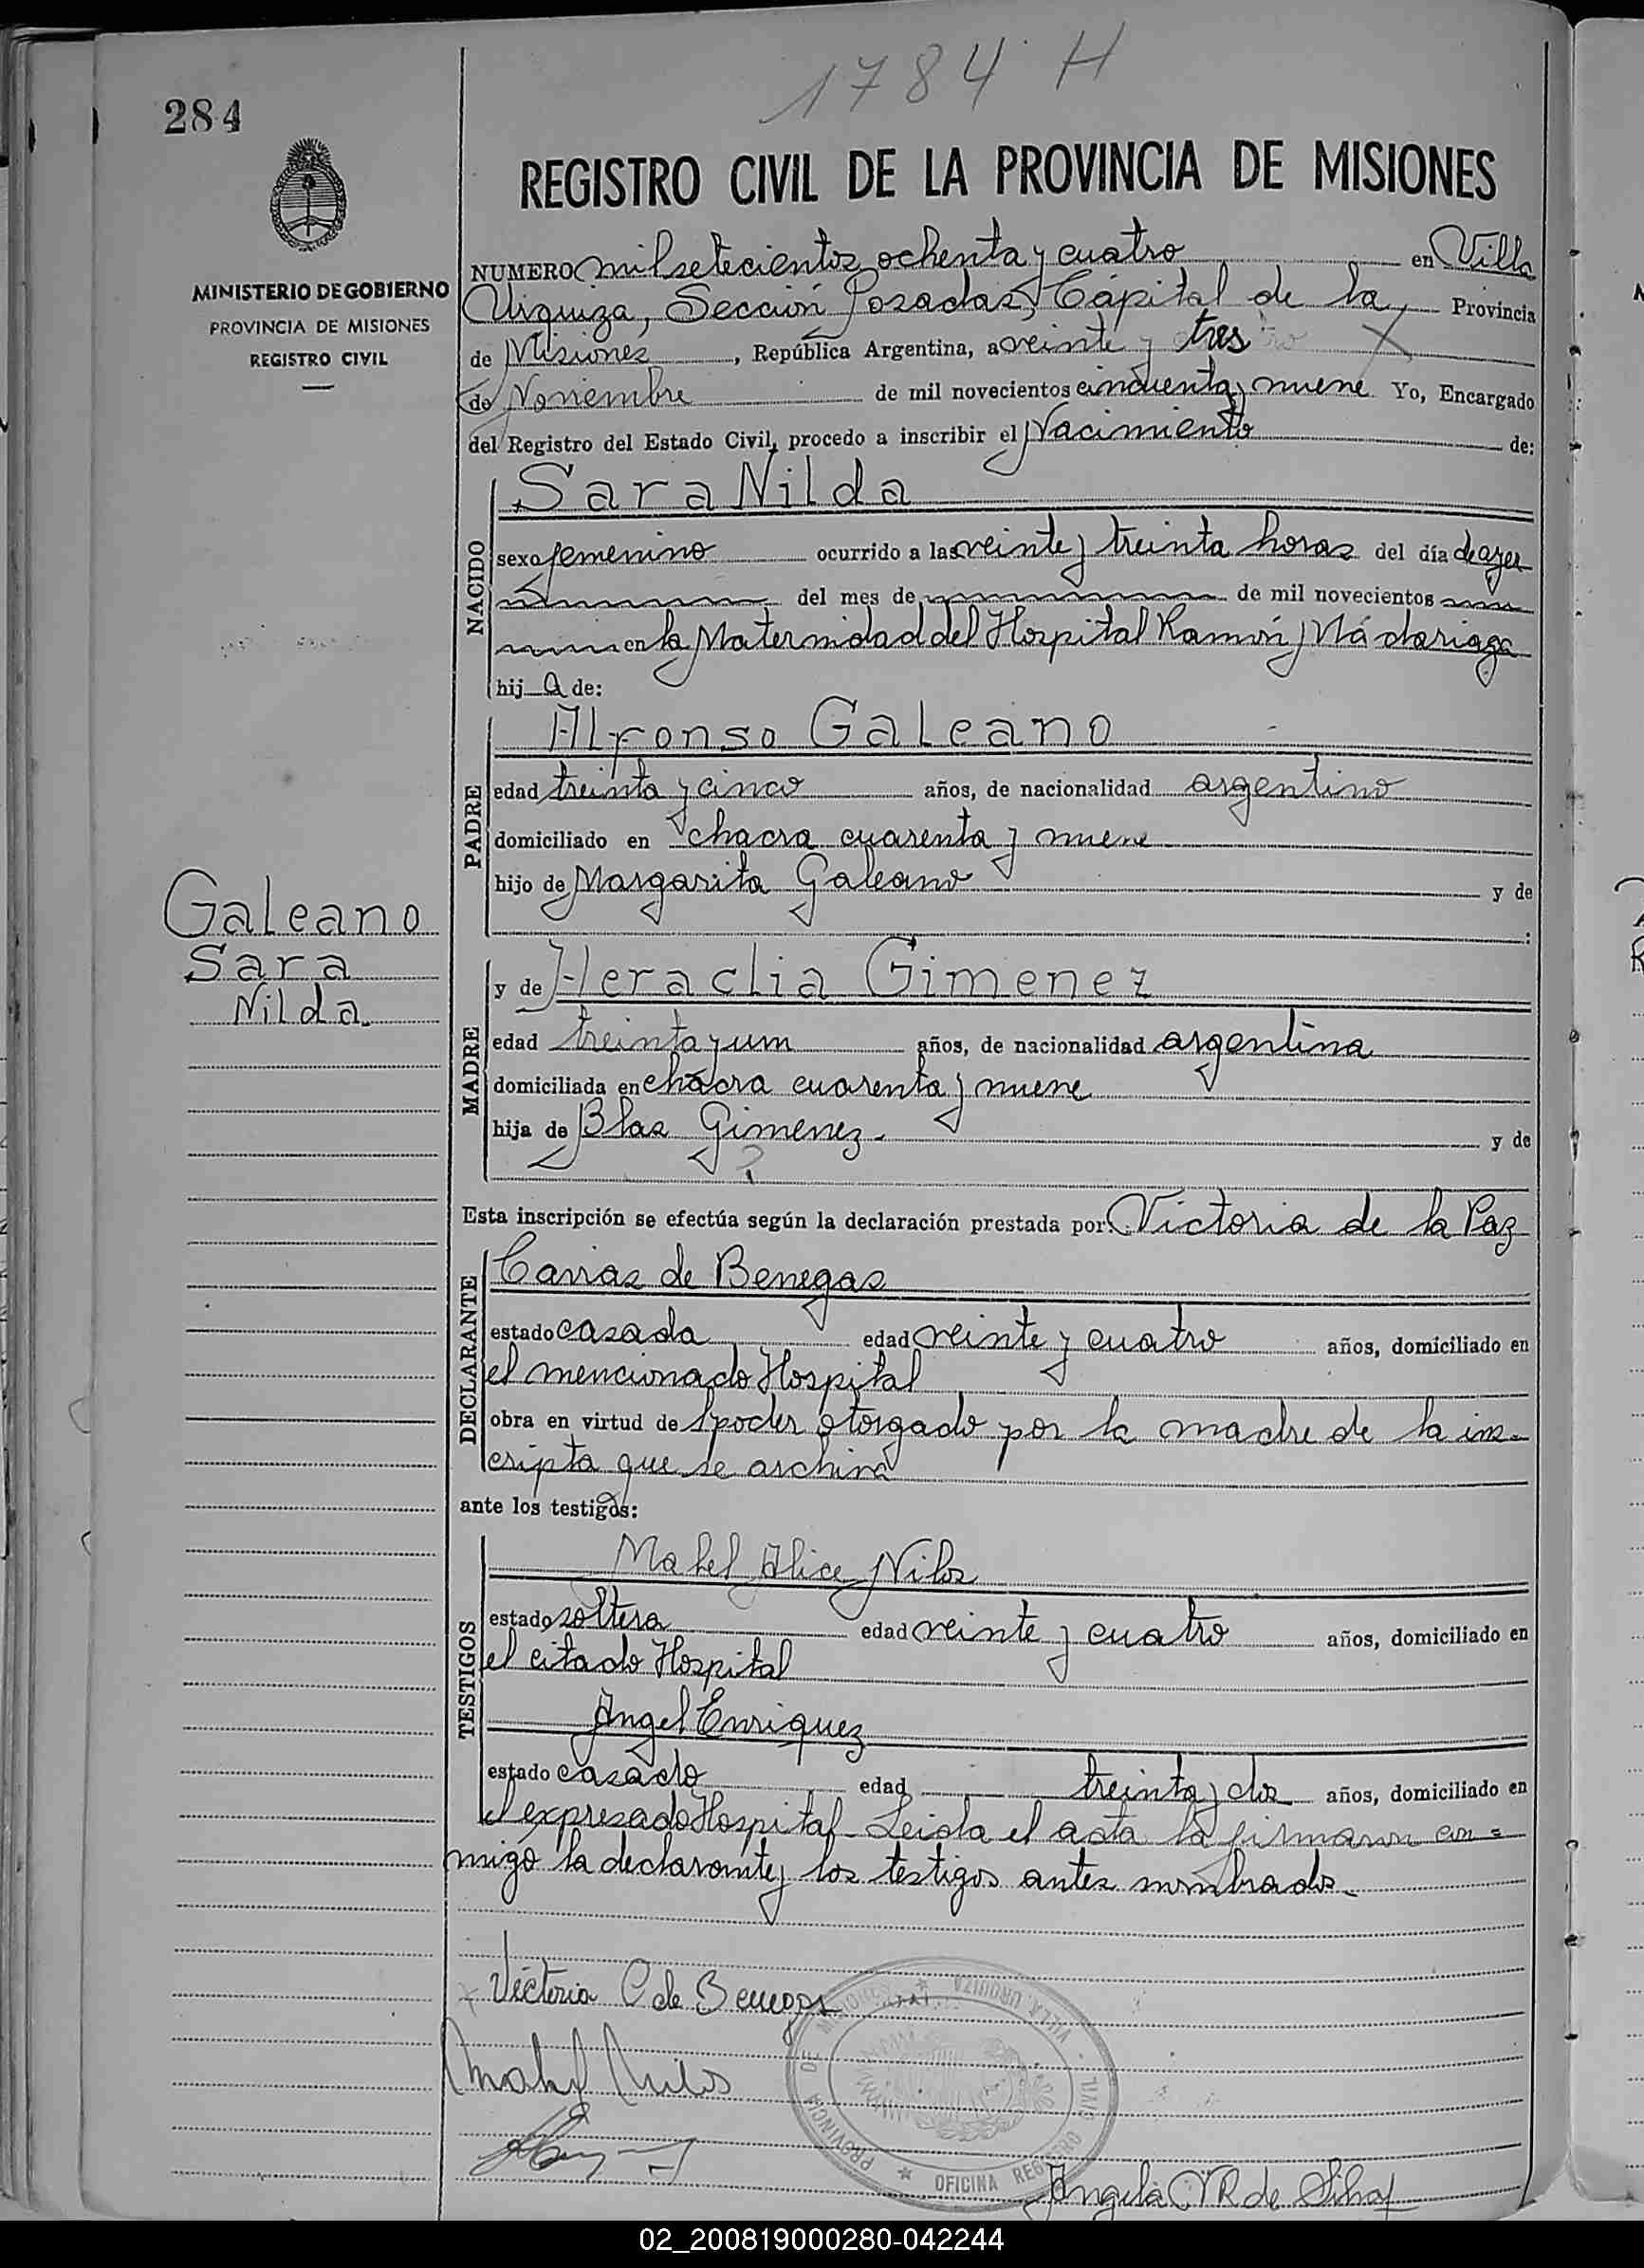 1784 H
284
REGISTRO CIVIL DE LA PROVINCIA DE MISIONES
MINISTERIO DE GOBIERNO
PROVINCIA DE MISIONES
REGISTRO CIVIL
NUMERO mil setecientos ochenta y cuatro en Villa
Urquiza, Sección Posadas, Capital de la Provincia
de Misiones, República Argentina, a veinte y tres
de Noviembre de mil novecientos cincuenta y nueve Yo, Encargado
del Registro del Estado Civil, procedo a inscribir el Nacimiento de:
NACIDO
Sara Nilda
sexo femenino ocurrido a las veinte y treinta horas del día de ayer
del mes de de mil novecientos
en la Maternidad del Hospital Ramón Madariaga
hij a de:
PADRE
Alfonso Galeano
edad treinta y cinco años, de nacionalidad argentino
domiciliado en chacra cuarenta y nueve
hijo de Margarita Galeano y de
:
Galeano
Sara
Nilda
MADRE
y de Heraclia Gimenez
edad treinta y un años, de nacionalidad argentina
domiciliada en chacra cuarenta y nueve
hija de Blas Gimenez. y de
?
Esta inscripción se efectúa según la declaración prestada por: Victoria de la Paz
DECLARANTE
de Benegas
estado casada edad veinte y cuatro años, domiciliado en
el mencionado Hospital
obra en virtud de poder otorgado por la madre de la ins-
cripta que se archiva
ante los testigos:
TESTIGOS
Mabel Alice Nilos
estado soltera edad veinte y cuatro años, domiciliado en
el citado Hospital
Angel Enriquez
estado casado edad treinta y dos años, domiciliado en
el expresado Hospital - Leida el acta la firmaron con=
migo la declarante y los testigos antes nombrados.
Victoria C de Benegas
Mabel Nilos
OFICINA REGISTRO CIVIL - VILLA URQUIZA
PROVINCIA DE
Angela R de Silva
02_200819000280-042244